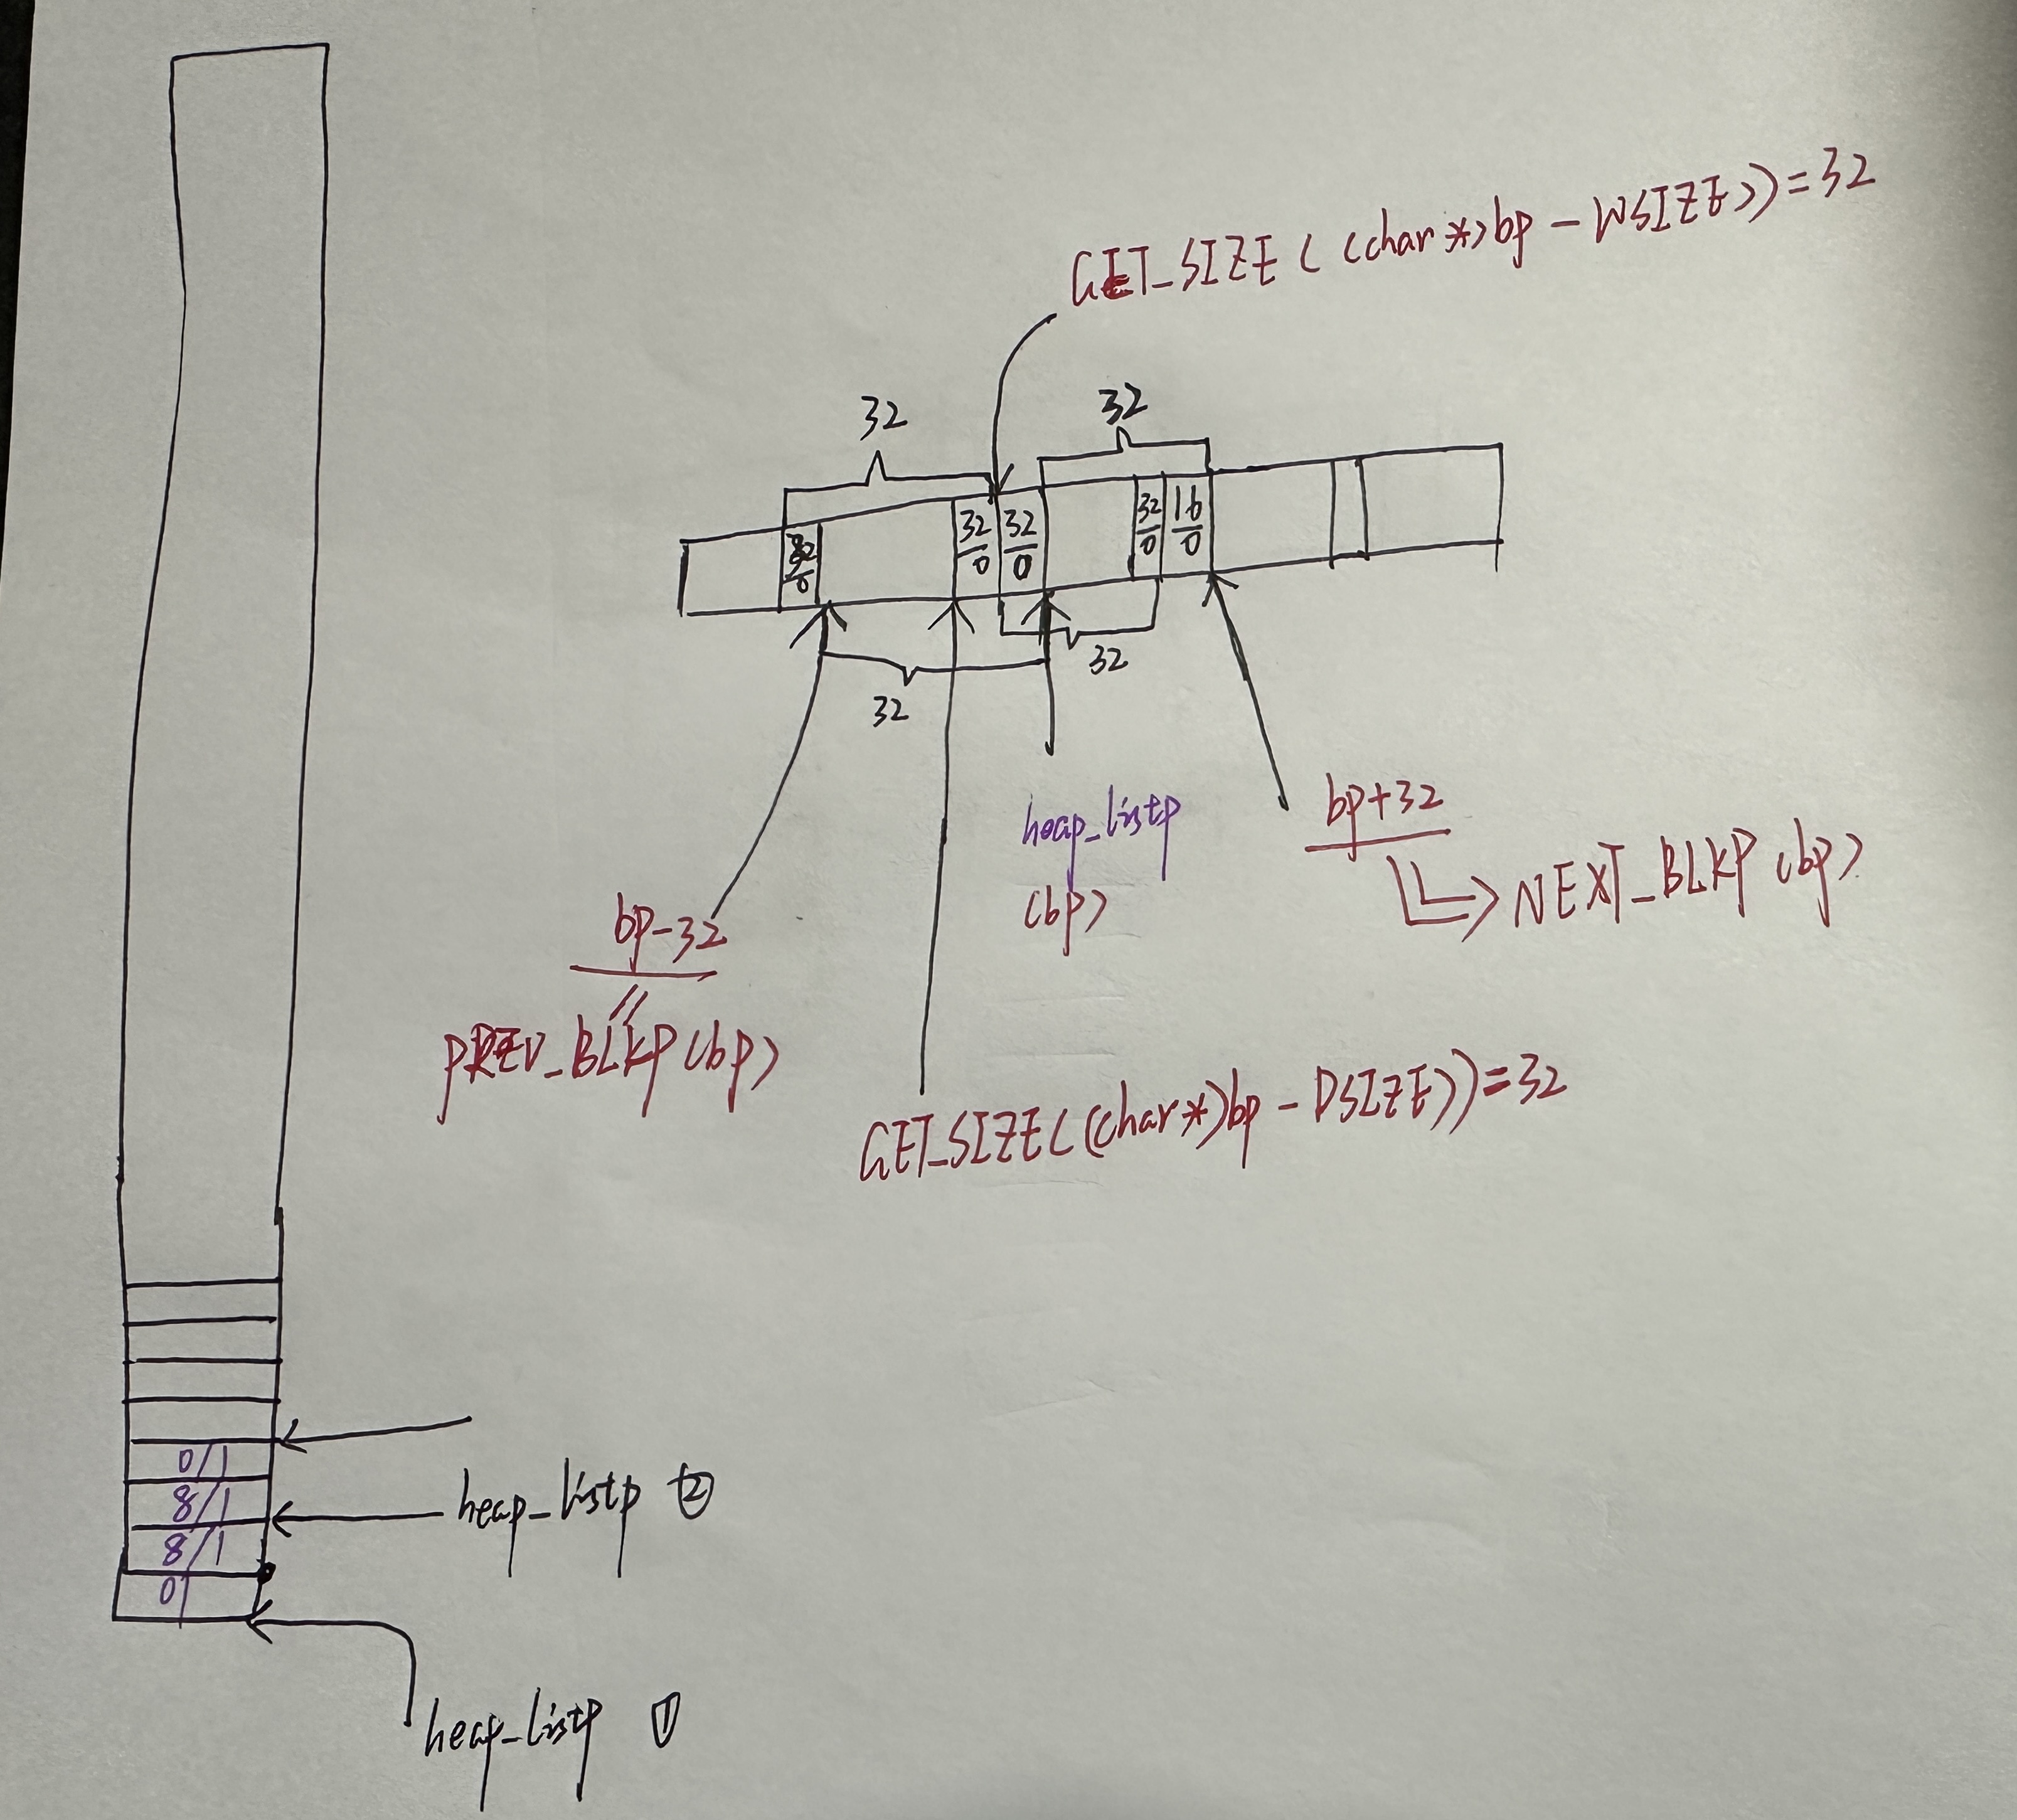 GET_SIZE ( (char *)bp - WSIZE)) = 32
32
32
32/0
32/0
32/0
32/0
16/0
32
32
heap_listp
(bp)
bp+32
NEXT_BLKP (bp)
bp-32
PREV_BLKP (bp)
GET_SIZE( (char *)bp - DSIZE)) = 32
0/1
8/1
heap_listp ②
8/1
0/
heap_listp ①